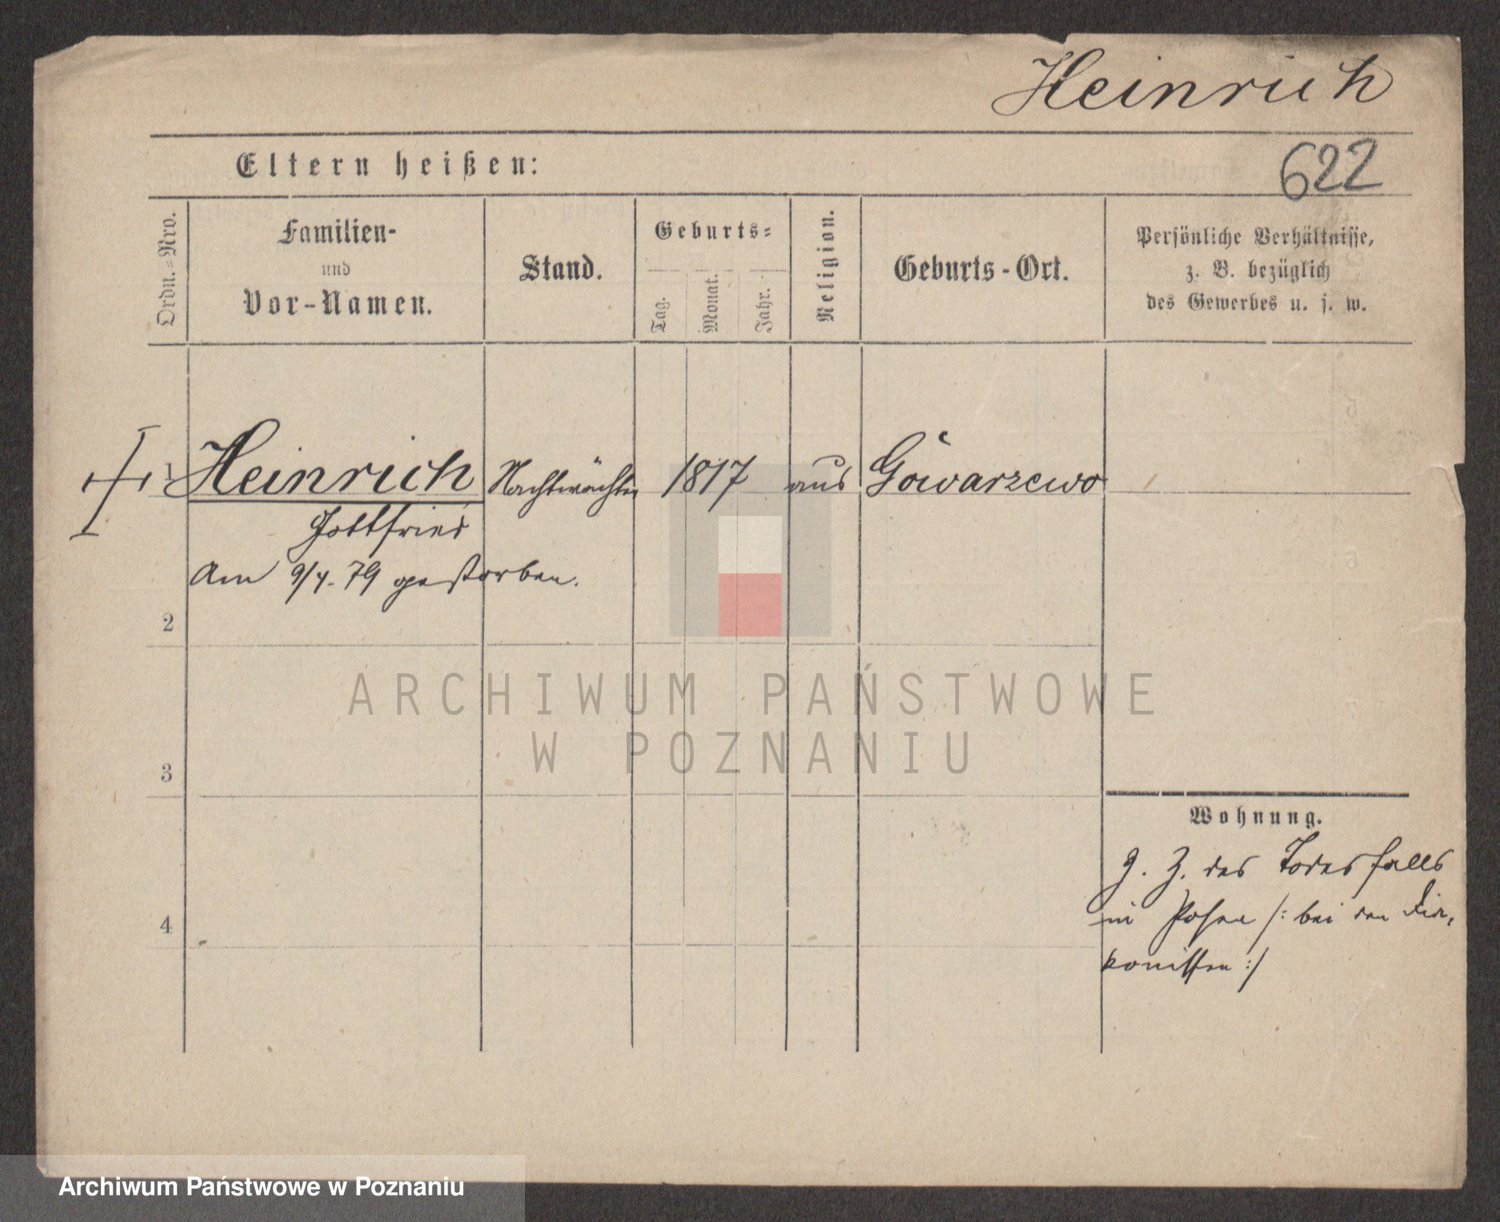 Heinrich
Eltern heißen:
622
Ordn.-Nro.
Familien-
und
Vor-Namen.
Stand.
Geburts-
Tag.
Monat.
Jahr.
Religion.
Geburts-Ort.
Persönliche Verhältnisse,
z. B. bezüglich
des Gewerbes u. s. w.
1 Heinrich Nachtwächter 1817 aus Gowarzewo
Gottfried
Am 9/4. 79 gestorben.
2
3
4
ARCHIWUM PAŃSTWOWE
W POZNANIU
Wohnung.
z. Z. des Todesfalls
in Posen /: bei den Dia-
konissen :/
Archiwum Państwowe w Poznaniu